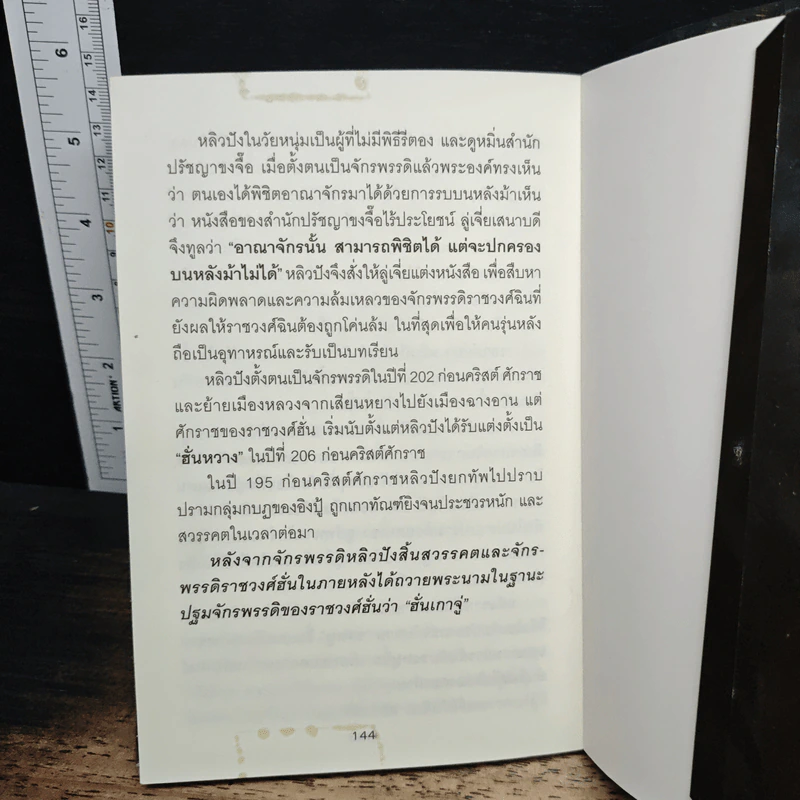 หลิวปังในวัยหนุ่มเป็นผู้ที่ไม่มีพิธีรีตอง และดูหมิ่นสำนัก
ปรัชญาขงจื๊อ เมื่อตั้งตนเป็นจักรพรรดิแล้วพระองค์ทรงเห็น
ว่า ตนเองได้พิชิตอาณาจักรมาได้ด้วยการรบบนหลังม้าเห็น
ว่า หนังสือของสำนักปรัชญาขงจื๊อไร้ประโยชน์ ลู่เจี่ยเสนาบดี
จึงทูลว่า “อาณาจักรนั้น สามารถพิชิตได้ แต่จะปกครอง
บนหลังม้าไม่ได้” หลิวปังจึงสั่งให้ลู่เจี่ยแต่งหนังสือ เพื่อสืบหา
ความผิดพลาดและความล้มเหลวของจักรพรรดิราชวงศ์ฉินที่
ยังผลให้ราชวงศ์ฉินต้องถูกโค่นล้ม ในที่สุดเพื่อให้คนรุ่นหลัง
ถือเป็นอุทาหรณ์และรับเป็นบทเรียน
หลิวปังตั้งตนเป็นจักรพรรดิในปีที่ 202 ก่อนคริสต์ ศักราช
และย้ายเมืองหลวงจากเสียนหยางไปยังเมืองฉางอาน แต่
ศักราชของราชวงศ์ฮั่น เริ่มนับตั้งแต่หลิวปังได้รับแต่งตั้งเป็น
“ฮั่นหวาง” ในปีที่ 206 ก่อนคริสต์ศักราช
ในปี 195 ก่อนคริสต์ศักราชหลิวปังยกทัพไปปราบ
ปรามกลุ่มกบฎของอิงปู้ ถูกเกาทัณฑ์ยิงจนประชวรหนัก และ
สวรรคตในเวลาต่อมา
หลังจากจักรพรรดิหลิวปังสิ้นสวรรคตและจักร-
พรรดิราชวงศ์ฮั่นในภายหลังได้ถวายพระนามในฐานะ
ปฐมจักรพรรดิของราชวงศ์ฮั่นว่า “ฮั่นเกาจู่”
144
6
5
4
3
2
1
16
15
14
13
12
11
10
9